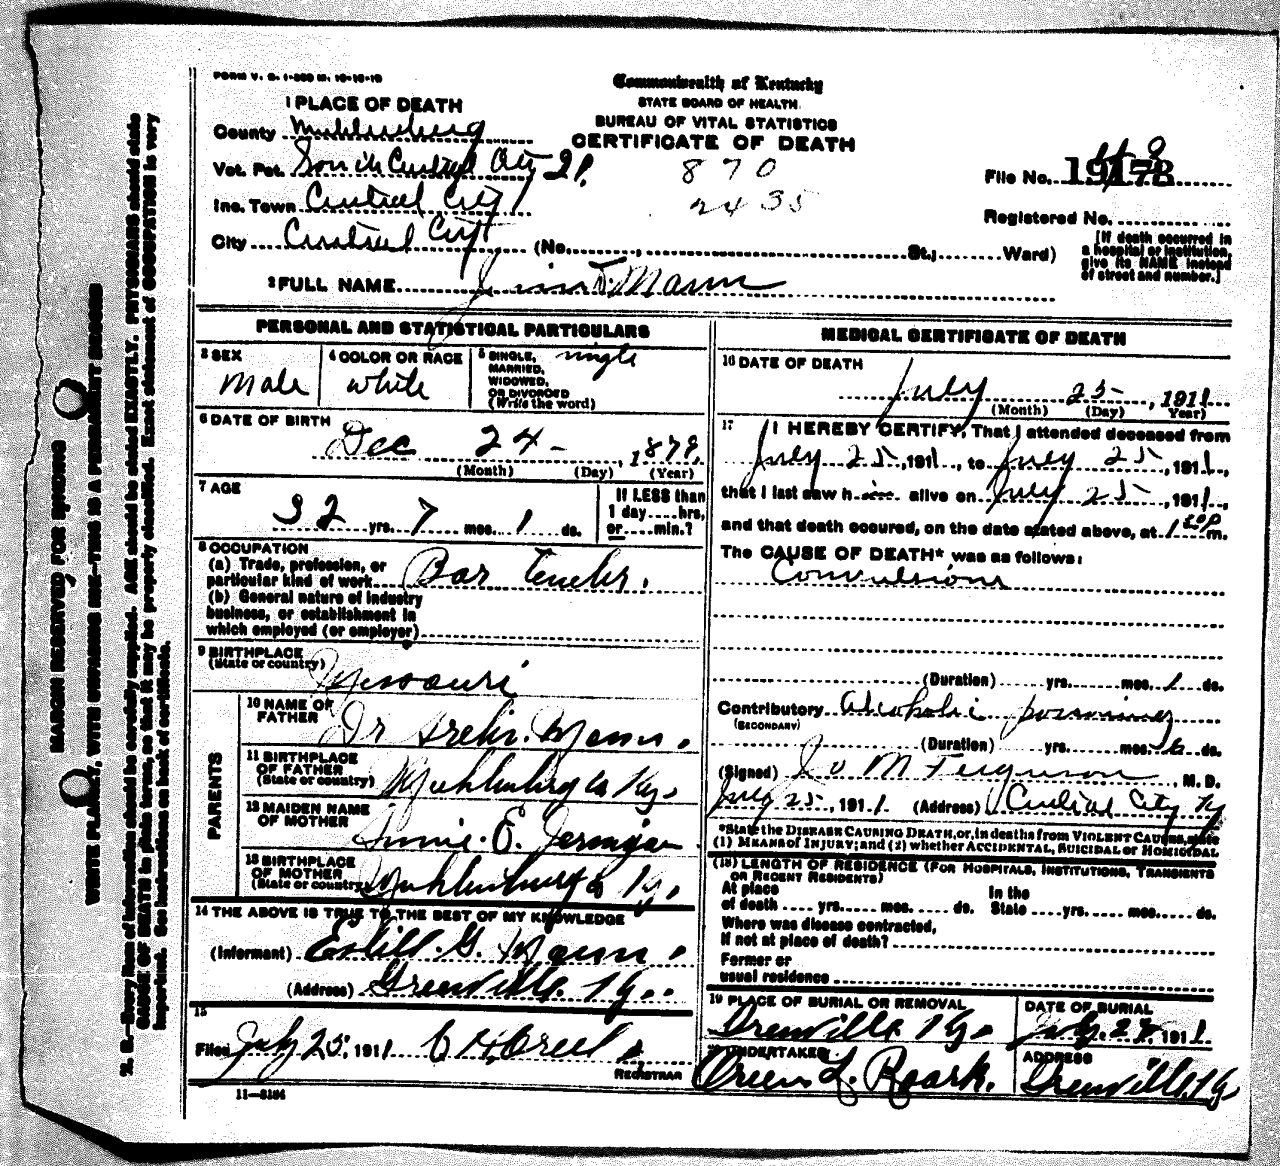 FORM V. S. 1-
Commonwealth of Kentucky
STATE BOARD OF HEALTH
BUREAU OF VITAL STATISTICS
CERTIFICATE OF DEATH
1 PLACE OF DEATH
County Muhlenberg
Vot. Pct. Central City 21.
Inc. Town Central City
City Central City (No. , St.; Ward)
870
2435
File No.
Registered No.
[If death occurred in
a hospital or institution,
give its NAME instead
of street and number.]
2 FULL NAME Mann
PERSONAL AND STATISTICAL PARTICULARS
3 SEX
Male
4 COLOR OR RACE
white
5 SINGLE,
MARRIED,
WIDOWED,
OR DIVORCED
(Write the word)
single
6 DATE OF BIRTH
Dec 24 - , 1879,
(Month) (Day) (Year)
7 AGE
32 yrs. 7 mos. 1 ds.
If LESS than
1 day....hrs,
or....min.?
8 OCCUPATION
(a) Trade, profession, or
particular kind of work Bar
(b) General nature of industry
business, or establishment in
which employed (or employer)
9 BIRTHPLACE
(State or country)
Missouri
PARENTS
10 NAME OF
FATHER
Dr Mann.
11 BIRTHPLACE
OF FATHER
(State or country)
Muhlenberg Co Ky.
12 MAIDEN NAME
OF MOTHER
E. Jernigan
13 BIRTHPLACE
OF MOTHER
(State or country)
Muhlenburg Co Ky.
14 THE ABOVE IS TRUE TO THE BEST OF MY KNOWLEDGE
(Informant) Estill. G. Mann.
(Address) Greenville. Ky..
15
Filed July 25, 1911
REGISTRAR
11—3184
MEDICAL CERTIFICATE OF DEATH
16 DATE OF DEATH
July 25 , 1911
(Month) (Day) Year)
17 I HEREBY CERTIFY, That I attended deceased from
July 25, 1911, to July 25, 1911,
that I last saw h im alive on July 25, 1911,
and that death occured, on the date stated above, at m.
The CAUSE OF DEATH* was as follows:
Convulsions
(Duration) yrs. mos. 1 ds.
Contributory Alcoholic poisoning
(SECONDARY)
(Duration) yrs. mos. ds.
(Signed) M Ferguson, M. D.
July 25, 1911. (Address) Central City Ky
*State the DISEASE CAUSING DEATH, or, in deaths from VIOLENT CAUSES, state
(1) MEANS OF INJURY; and (2) whether ACCIDENTAL, SUICIDAL or HOMICIDAL
(18) LENGTH OF RESIDENCE (FOR HOSPITALS, INSTITUTIONS, TRANSIENTS
OR RECENT RESIDENTS)
At place
of death yrs. mos. ds.
In the
State yrs. mos. ds.
Where was disease contracted,
if not at place of death?
Former or
usual residence
19 PLACE OF BURIAL OR REMOVAL
Greenville Ky.
DATE OF BURIAL
July 27, 1911.
UNDERTAKER
Green L. Roark.
ADDRESS
Greenville, Ky
MARGIN RESERVED FOR BINDING
WRITE PLAINLY, WITH UNFADING INK—THIS IS A PERMANENT RECORD
N. B.—Every item of information should be carefully supplied. AGE should be stated EXACTLY. PHYSICIANS should state
CAUSE OF DEATH in plain terms, so that it may be properly classified. Exact statement of OCCUPATION is very
important. See instructions on back of certificate.